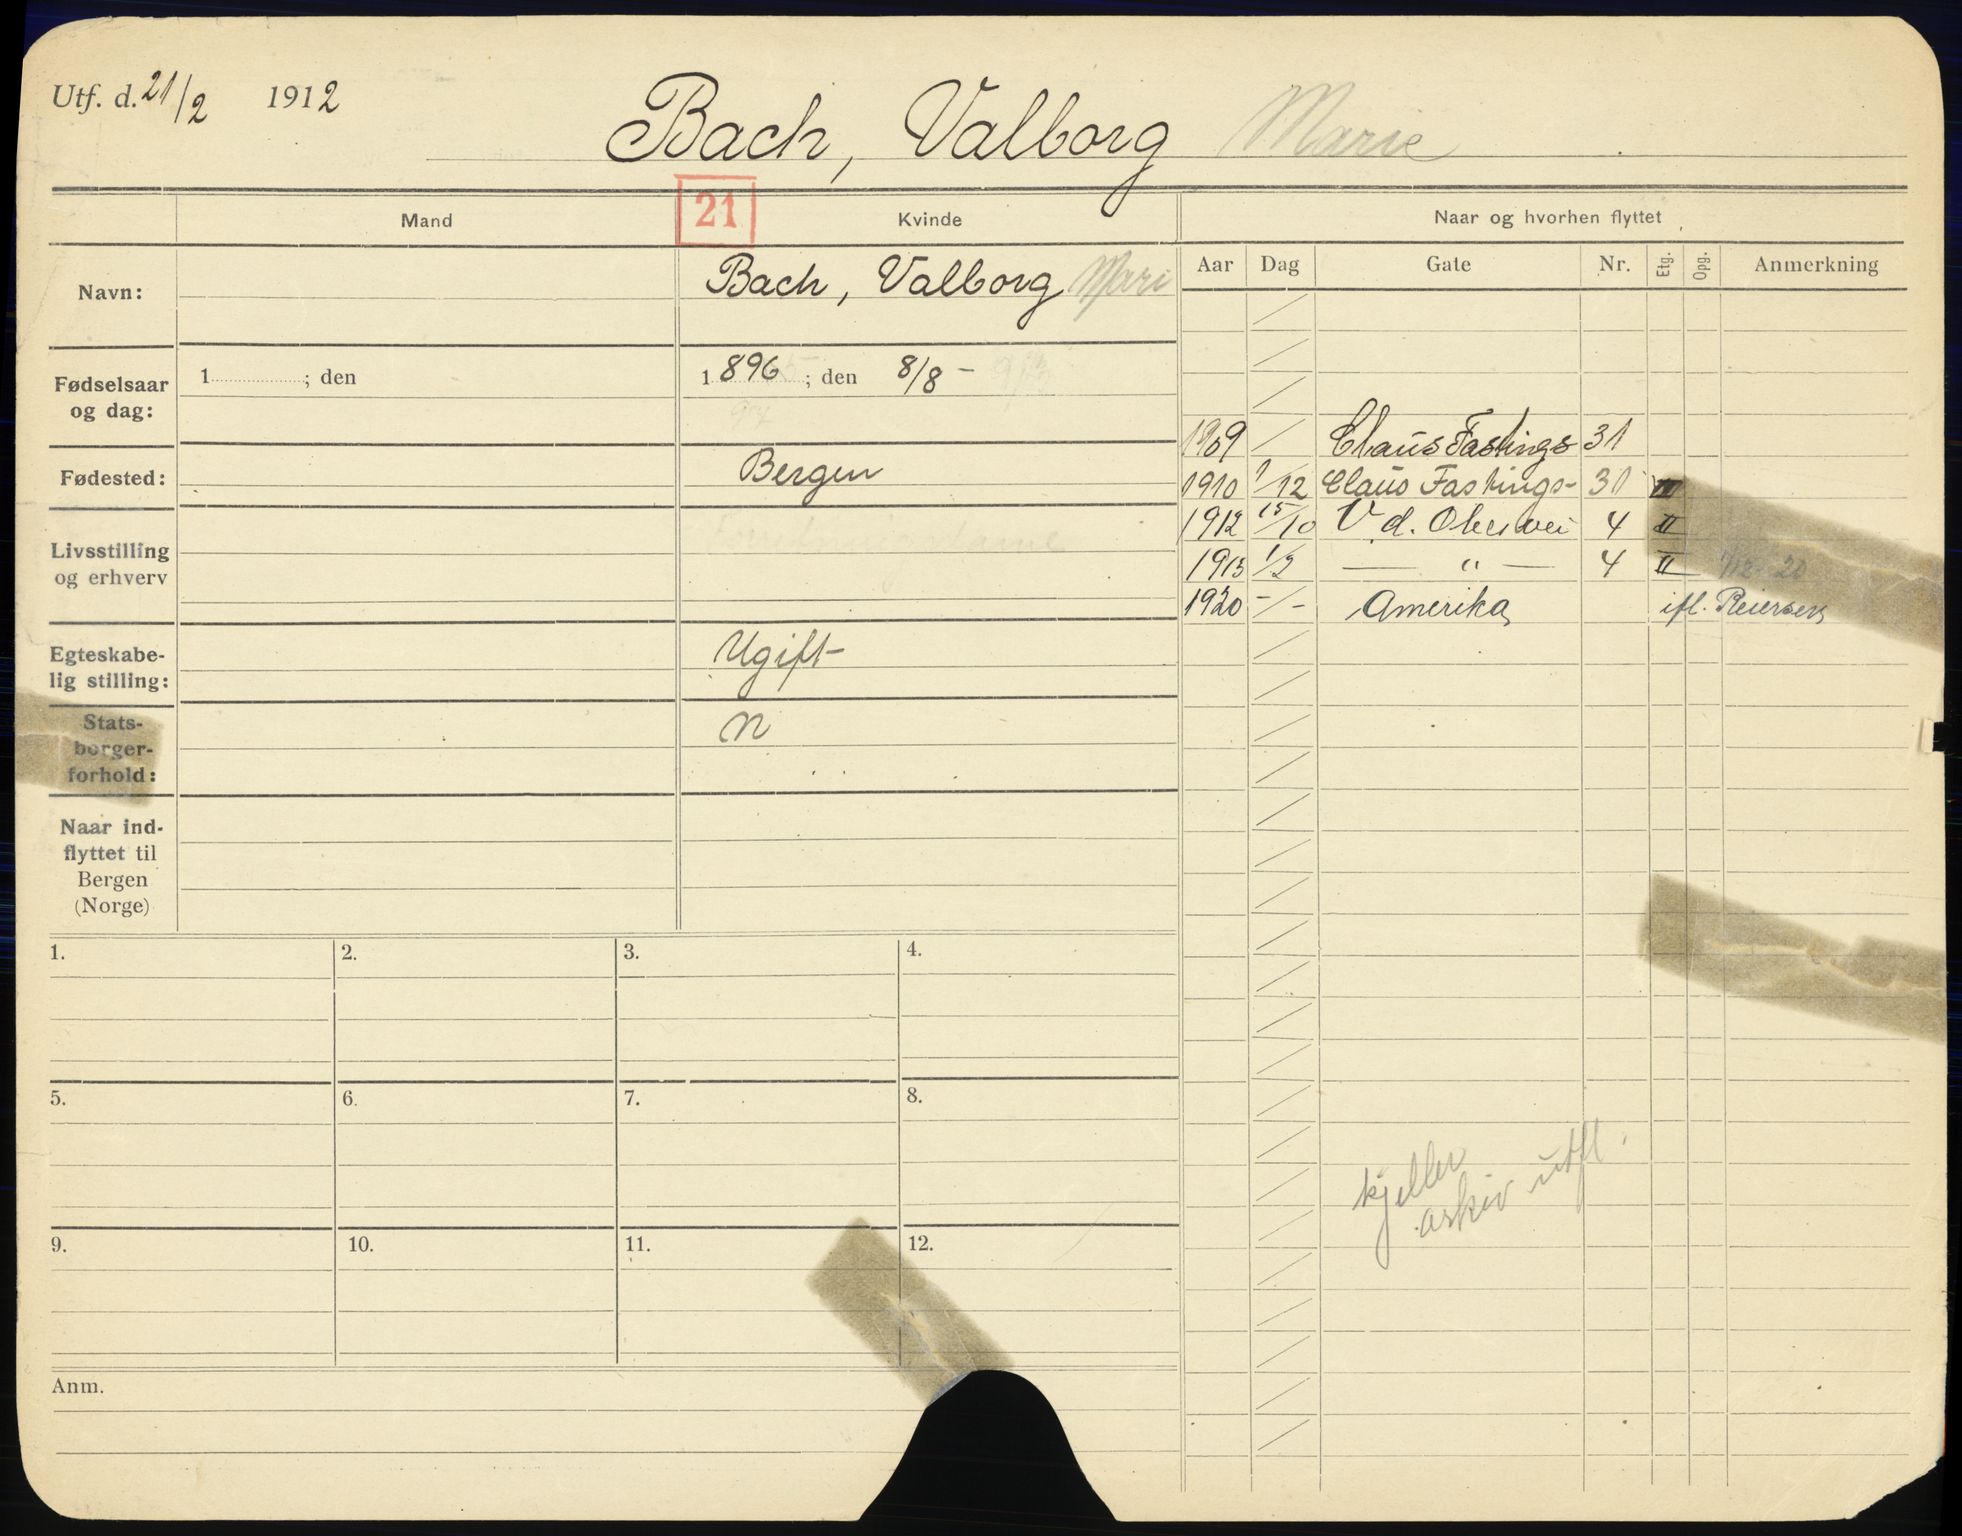 Utf. d. 21/2 1912
Bach, Valborg Marie
Mand
21
Kvinde
Naar og hvorhen flyttet
Aar Dag Gate Nr. Etg. Opg. Anmerkning
Navn:
Bach, Valborg Mari
Fødselsaar
og dag:
1 ; den
1 896 ; den 8/8 -
Fødested:
Bergen
Livsstilling
og erhverv
Egteskabe-
lig stilling:
Ugift
Stats-
borger-
forhold:
N
Naar ind-
flyttet til
Bergen
(Norge)
1909 Claus Fastings 31
1910 1/12 Claus Fastings- 31 III
1912 15/10 V. d. Ohesvei 4 II
1913 1/2 — " — 4 II
1920 -/- Amerika ifl. Reiersen
1.
2.
3.
4.
5.
6.
7.
8.
9.
10.
11.
12.
Anm.
kjeller
arkiv utfl.